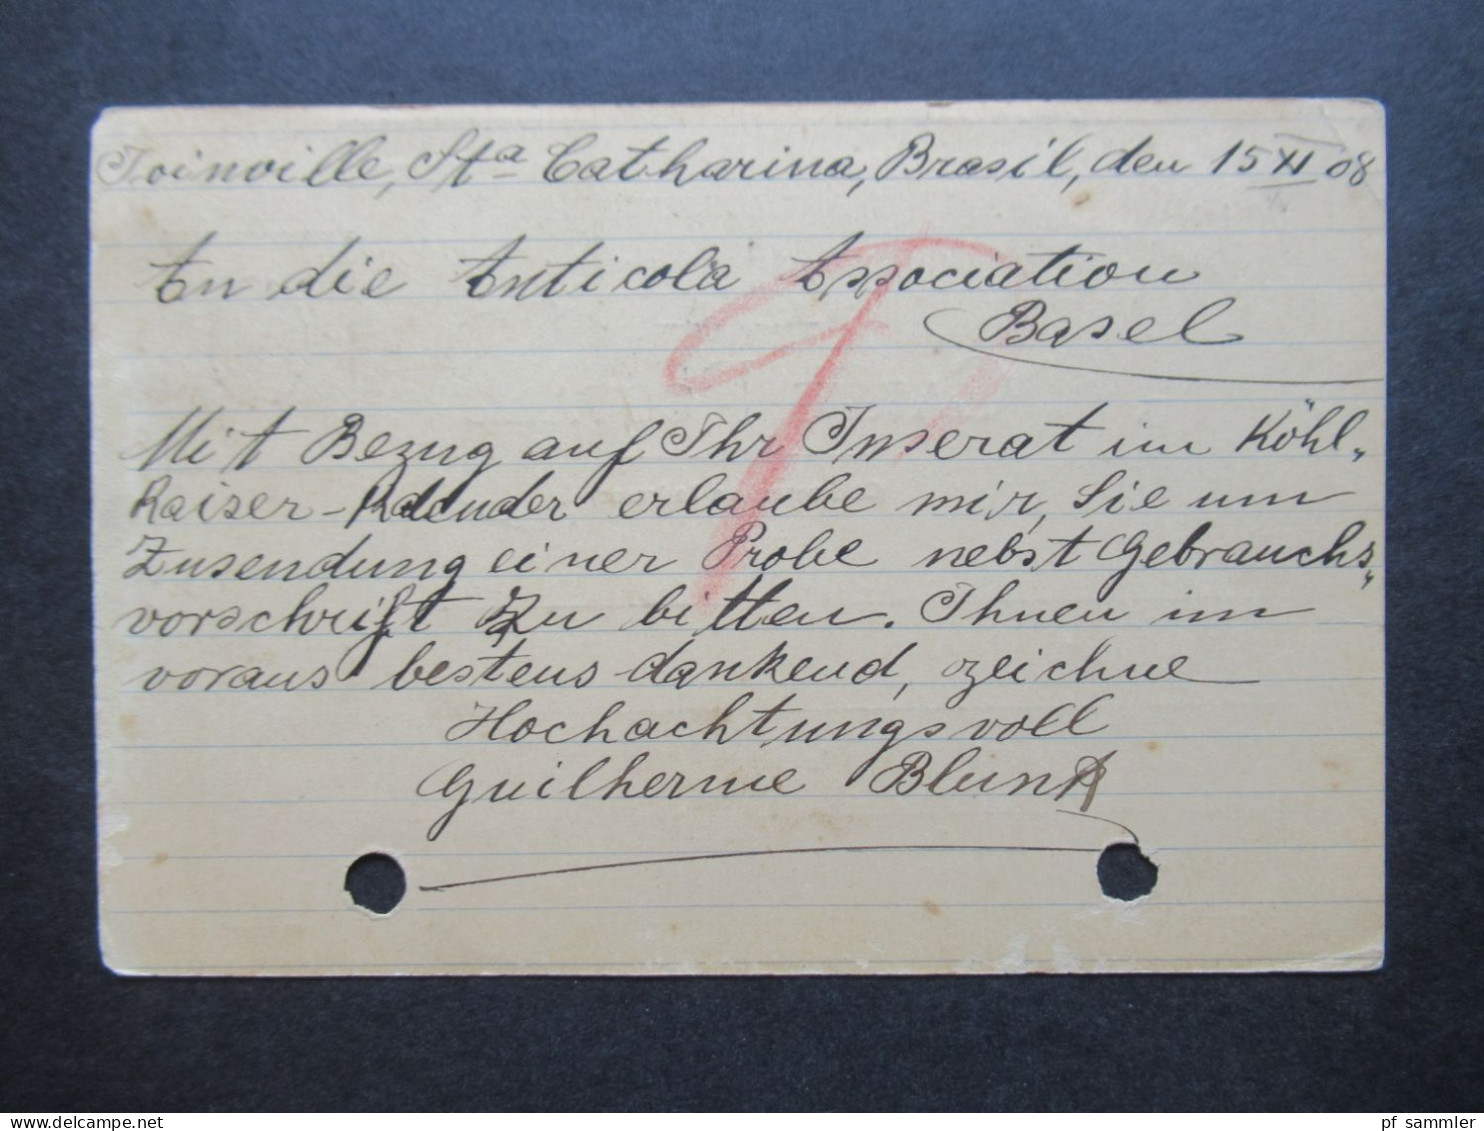 Joinville, Sta Catharina, Brasil, den 15 XI 08
An die Anticola Association
Basel
Mit Bezug auf Ihr Inserat im Köhl„
Kaiser-Kalender erlaube mir, Sie um
Zusendung einer Probe nebst Gebrauchs„
vorschrift zu bitten. Ihnen im
voraus bestens dankend, zeichne
Hochachtungsvoll
Guilherme Blunk
www.delcampe.net
pf_sammler